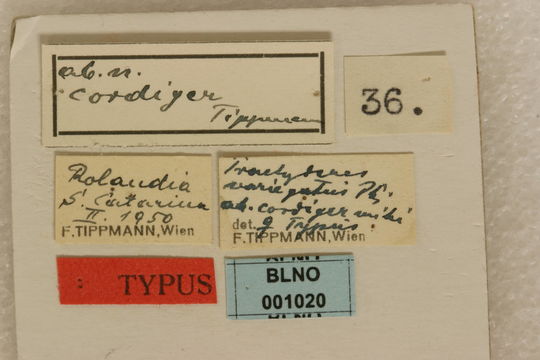 ab. n.
cordiger
Tippmann
36.
Rolandia
S. Catarina
II. 1950
F.TIPPMANN,Wien
Trachyderes
variegatus Pt.
ab. cordiger mihi
det. ♀ Typus
F.TIPPMANN,Wien
TYPUS
BLNO
001020